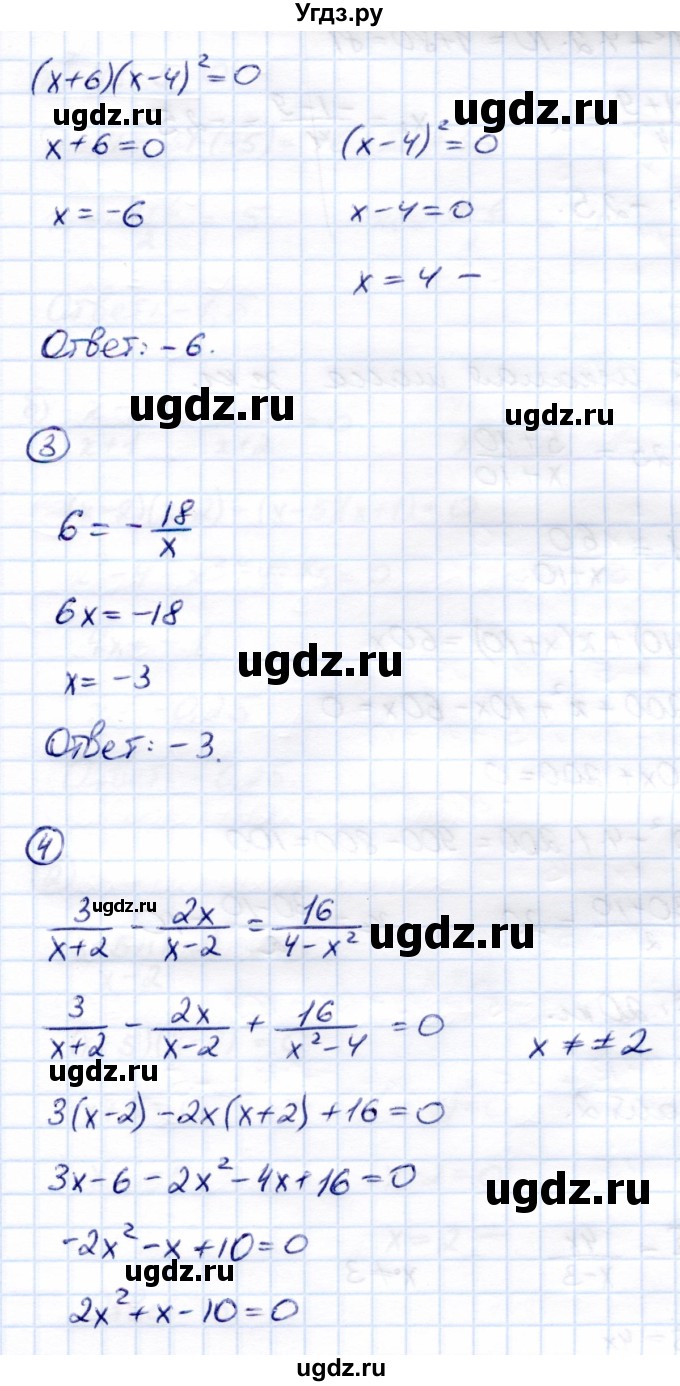 Угдз.ру
(x+6)(x-4)²=0
ugdz.ru ugdz.ru
x+6=0 (x-4)²=0
x=-6 x-4=0
x=4 -
Ответ: -6.
ugdz.ru ugdz.ru
3
6=-18/x
6x=-18
ugdz.ru
x=-3
Ответ: -3.
4
ugdz.ru
3/(x+2) - 2x/(x-2) = 16/(4-x²)
ugdz.ru
3/(x+2) - 2x/(x-2) + 16/(x²-4) =0 x≠±2
ugdz.ru
3(x-2)-2x(x+2)+16=0
3x-6-2x²-4x+16=0
ugdz.ru
-2x²-x+10=0
ugdz.ru
2x²+x-10=0
ugdz.ru